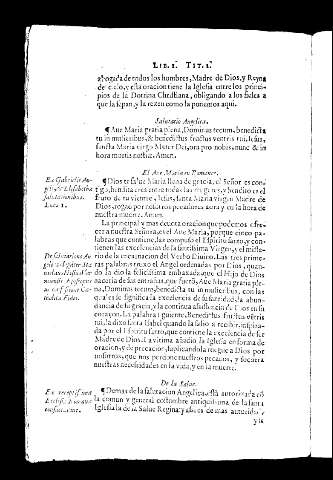 LIB. I. TIT. I.
abogada de todos los hombres, Madre de Dios, y Reyna
de cielo, y esta oracion tiene la Iglesia entre los princi-
pios de la Dotrina Christiana, obligando a los fieles a
que la sepan, y la rezen como la ponemos aqui.
Salutatio Angelica.
¶ Aue Maria gratia plena, Dominus tecum, benedicta
tu in mulieribus, & benedictus fructus ventris tui, Iesus,
sancta Maria virgo Mater Dei, ora pro nobis nunc & in
hora mortis nostræ. Amen.
El Aue Maria en Romance.
Ex Gabriele An-
gelo & Elisabetha
salutationibus.
Luc. 1.
¶ Dios te salue Maria llena de gracia, el Señor es con-
tigo, bendita eres entre todas las mugeres, y bendito es el
fruto de tu vientre Iesus, santa Maria Virgen Madre de
Dios, ruega por nosotros pecadores aora y en la hora de
nuestra muerte. Amen.
La principal y mas deuota oracion que podemos ofre-
cer a nuestra Señora, es el Aue Maria, porque cinco pa-
labras que contiene, las compuso el Espiritu santo, y con-
tienen las excelencias de la santissima Virgen, y el miste-
rio de la encarnacion del Verbo Diuino. Las tres prime-
ras palabras traxo el Angel ordenadas por Dios, quan-
do la dio la felicissima embaxada que el Hijo de Dios
na, Dominus tecum, benedicta tu in mulieribus, con las
La palabra siguiente, Benedictus fructus ventris
tui, la dixo santa Isabel quando la salio a recebir, inspira-
da por el Espiritu santo, que contiene la excelencia de ser
Madre de Dios. La vltima añadio la Iglesia en forma de
oracion, y deprecacion, suplicandola ruegue a Dios por
nosotros, que nos perdone nuestros pecados, y socorra
nuestras necessidades en la vida, y en la muerte.
De la Salue.
¶ Demas de la salutacion Angelica, està autorizada cõ
la comun y general costumbre antiquissima de la santa
Iglesia la de la Salue Regina, y assi es de mas autoridad,
y la